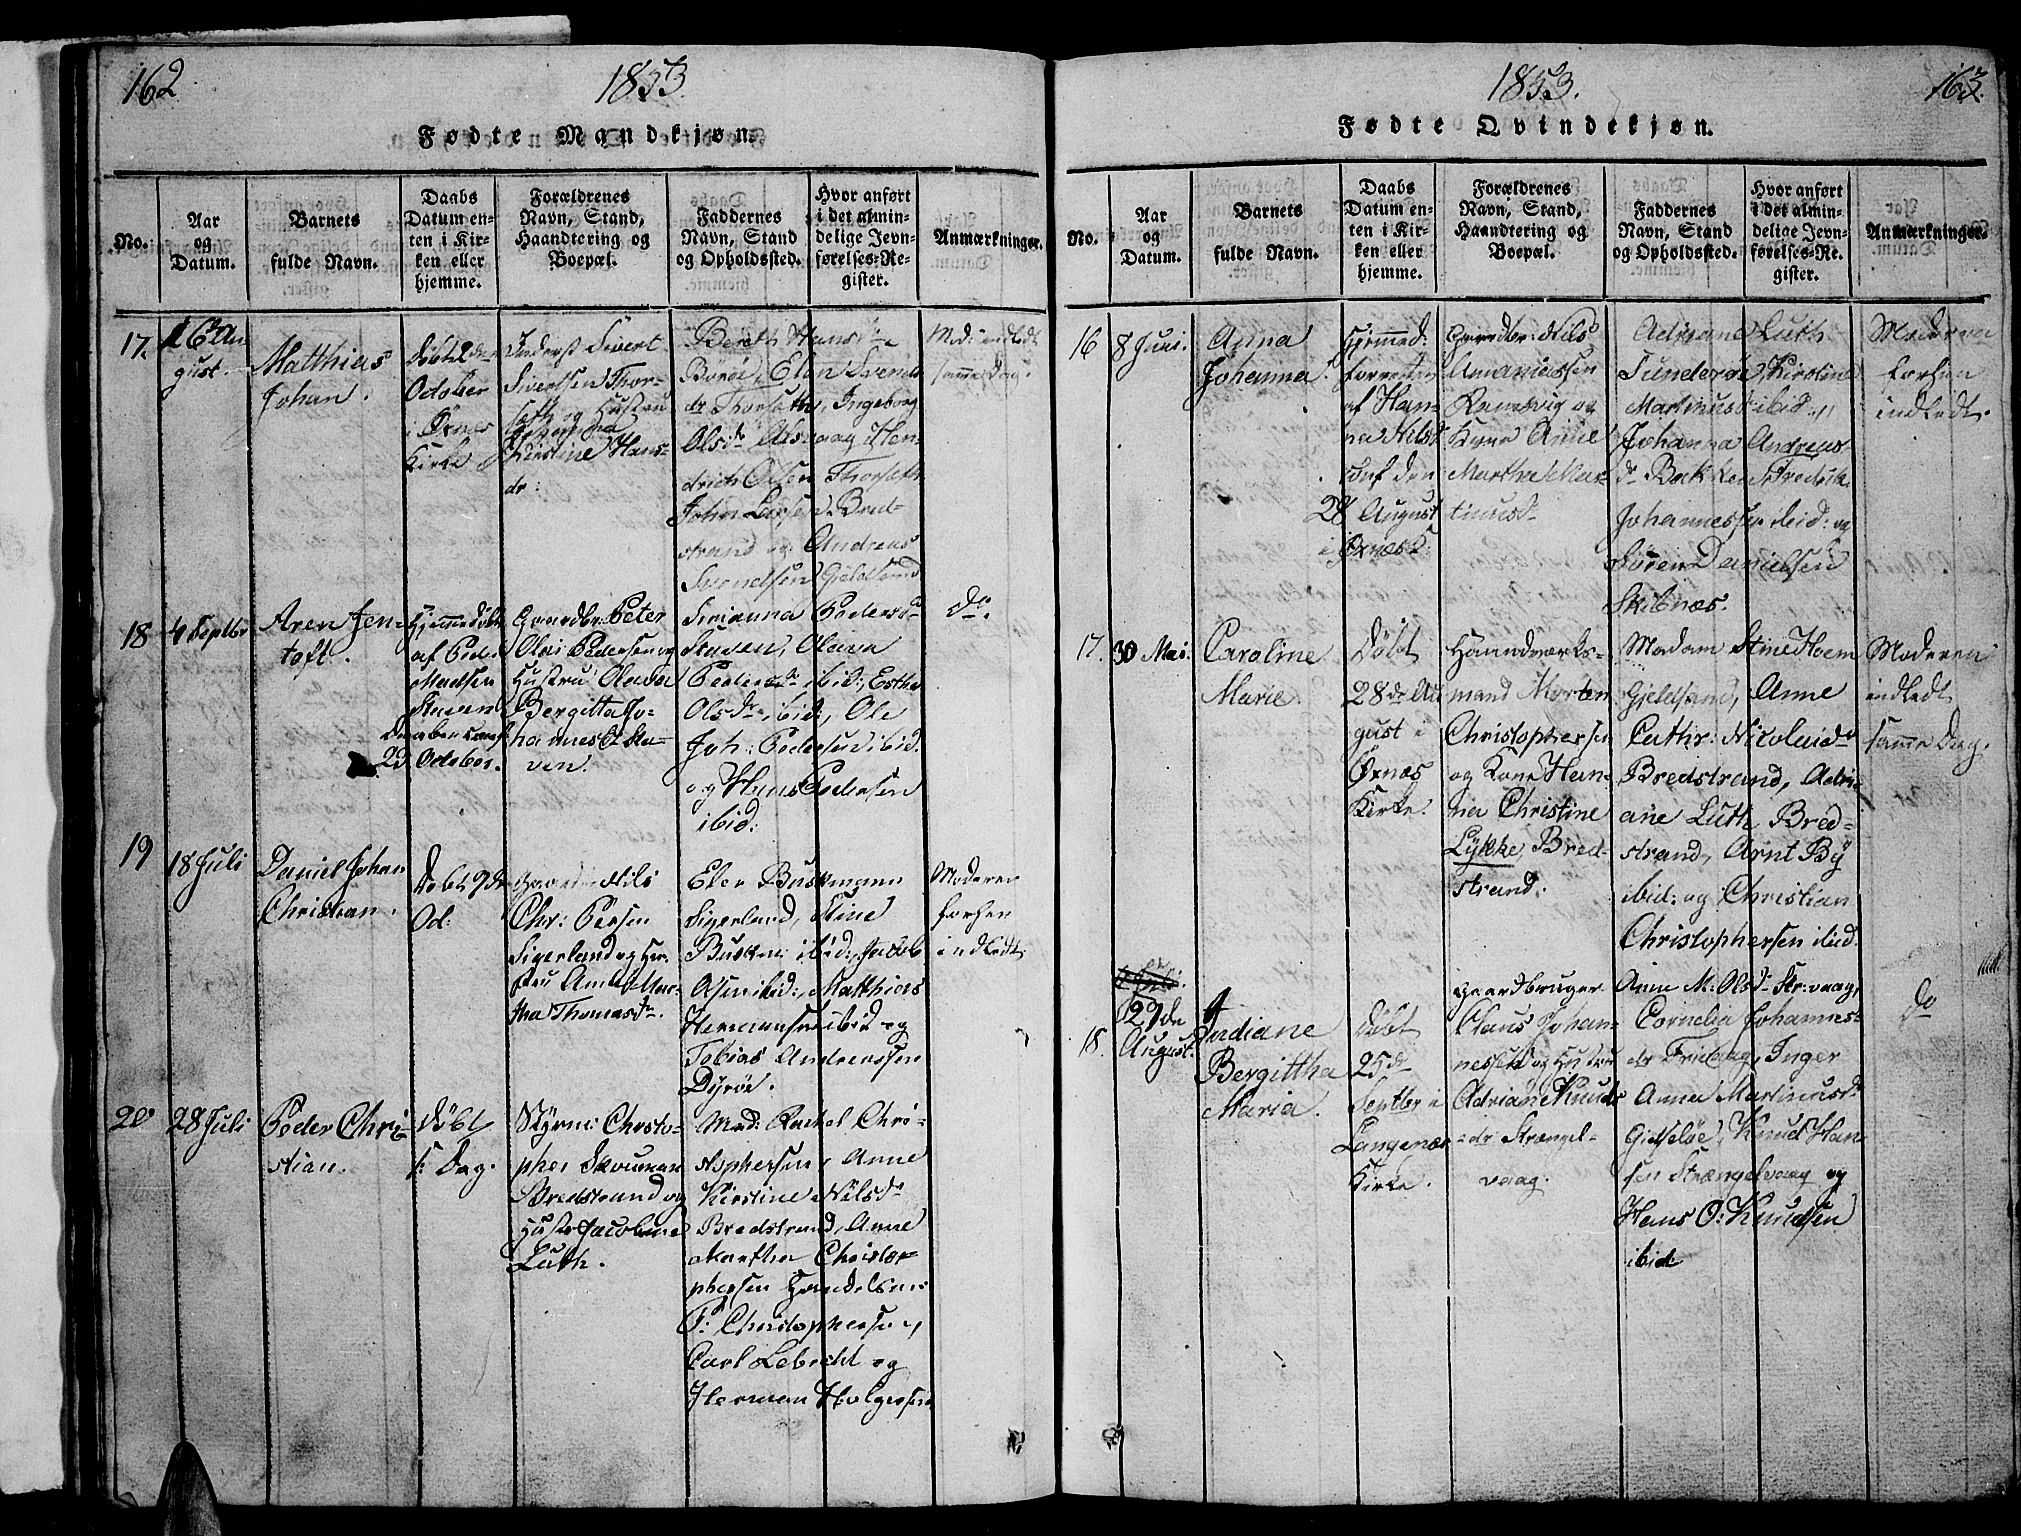 162
1853
Fødte Mandkjøn.
No.
Aar
og
Datum.
Barnets
fulde Navn.
Daabs
Datum en-
ten i Kir-
ken eller
hjemme.
Forældrenes
Navn, Stand,
Haandtering og
Boepæl.
Faddernes
Navn, Stand
og Opholdssted.
Hvor anført
i det almin-
delige Jevn-
førelses-Re-
gister.
Anmærkninger.
17.
16 Au
gust.
Matthias
Johan.
Döbt 2 den
October
i Öxnes
Kirke
Sivert
Sivertsen Thor-
seth og Hustru
Kirstine Hans-
dr:
Bereth Hansdr
Böröe, Elen Svends
dr Thorseth, Ingeborg
Olsdr Alsvaag Hen-
drich Olsen Thorseth
John Larsen Bred-
strand og Andreas
Svendsen Gjeldsand
Mod: indledt
samme Dag.
18
4 Septbr
Aren Jen-
toft.
Hjemmedöbt
af Peder
Madsen
Staven
23 October.
Gaardbr: Peter
Olai Pedersen og
Hustru Olava
Bergitta Jo-
hannesd: Sta-
ven.
Simanna Pedersdr
Staven, Olava
Pedersdr ibid:, Esther
Olsdr ibid:, Ole
Joh: Pedersen ibid.
og Hans Pedersen
ibid:
Do.
19
18 Juli
Daniel Johan
Christian.
Döbt 9 de
Oct:
Nils
Chr: Persen
Sigerland og Hu-
stru Anne Mar-
tha Thomasdr.
Elen Buskmann
Sigerland, Stine
Buskm: ibid:, Jacob
Olsen ibid:, Matthias
Hermansen ibid og
Tobias Andreassen
Dyröe.
Moderen
forhen
indledt
20
28 Juli
Peder Chri-
stian.
Döbt
s: Dag.
Styrm: Christo-
pher Skouman
Bredstrand og
Hustr Jacobine
Luth.
Mad: Rachel Chri-
stophersen, Anne
Kirstine Nilsdr
Bredstrand, Anne
Martha Christo-
phersen Handelsm:
P: Christophersen,
Carl Lebrecht og
Herman Holgersen
1853.
163.
Fødte Qvindekjøn.
No.
Aar
og
Datum.
Barnets
fulde Navn.
Daabs
Datum en-
ten i Kir-
ken eller
hjemme.
Forældrenes
Navn, Stand,
Haandtering og
Boepæl.
Faddernes
Navn, Stand
og Opholdssted.
Hvor anført
i det almin-
delige Jevn-
førelses-Re-
gister.
Anmærkninger.
16
8 Juni.
Anna
Johanna.
Hjemmed:
forrettet
af Han-
na Nilsd
conf den
28 August
i Öxnes K:
Gaardbr: Nils
Ananiassen
Ramsvig og
Kone Anne
Martha Mar-
tinusd
Adriane Luth
Sunderöe, Kiroline
Martinusd ibid:,
Johanna Andreas-
dr Bakken, Fredrik
Johannessen ibid: og
Sören Danielsen
Skibnæs.
Moderen
forhen
indledt.
17.
30 Mai.
Caroline
Marie.
Döbt
28 de Au
gust i
Öxnæs
Kirke.
Haandværks-
mand Morten
Christophersen
og Kone Han-
na Christine
Lykke, Bred-
strand.
Madam Stine Hoem
Gjeldsand, Anne
Cathr: Nikolaidr
Bredstrand, Adri-
ane Luth Bred-
strand, Arnt By
ibid: og Christian
Christophersen ibid.
Moderen
indledt
samme Dag.
18.
29 de
August.
Indiane
Bergittha
Maria.
Döbt
25 d
Septbr i
Langenæs
Kirke.
Gaardbruger
Claus Johan-
nessen og Hustru
Adriane Knuds
dr Strængel-
vaag.
Anne M: Olsd Str:vaag,
Cornelia Johannes-
dr Friivaag, Inger
Anna Martinusdr
Gidslöe, Knud Han-
sen Strængelvaag og
Hans O: Knudsen
ibid
Do